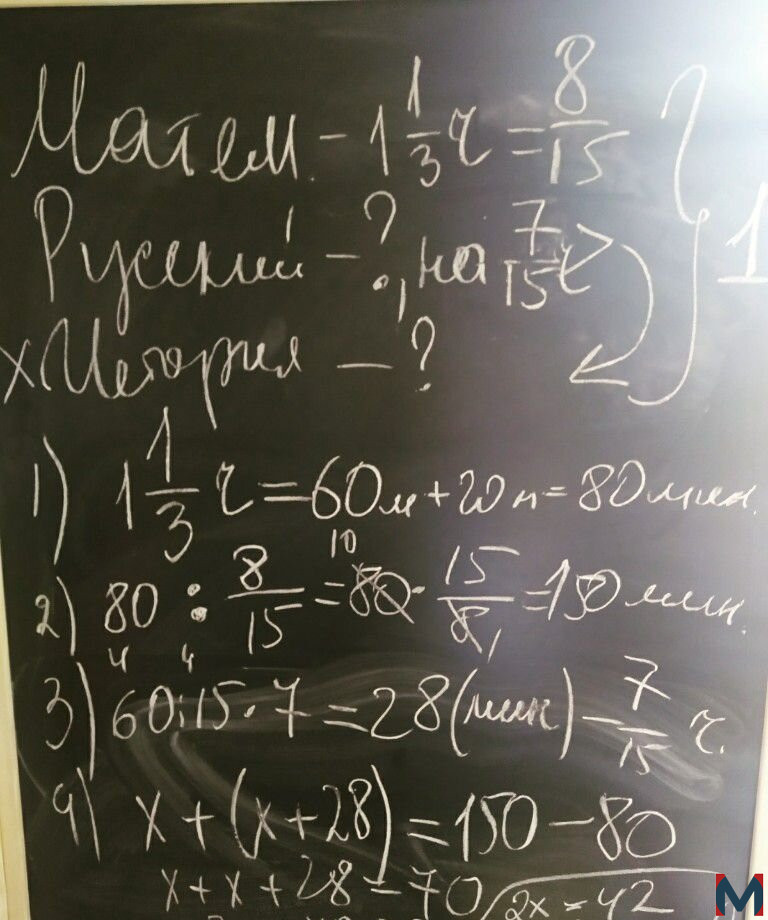 Матем. - 1 1/3 ч = 8/15
Русский - ?, на 7/15 ч > 1
x История - ?
1) 1 1/3 ч = 60 м + 20 м = 80 мин.
2) 80 : 8/15 = 80 10 · 15/8 1 = 150 мин.
3) 60 4 : 15 · 7 = 28 (мин) - 7/15 ч.
4) x + (x + 28) = 150 - 80
x + x + 28 = 70 2x = 42
M